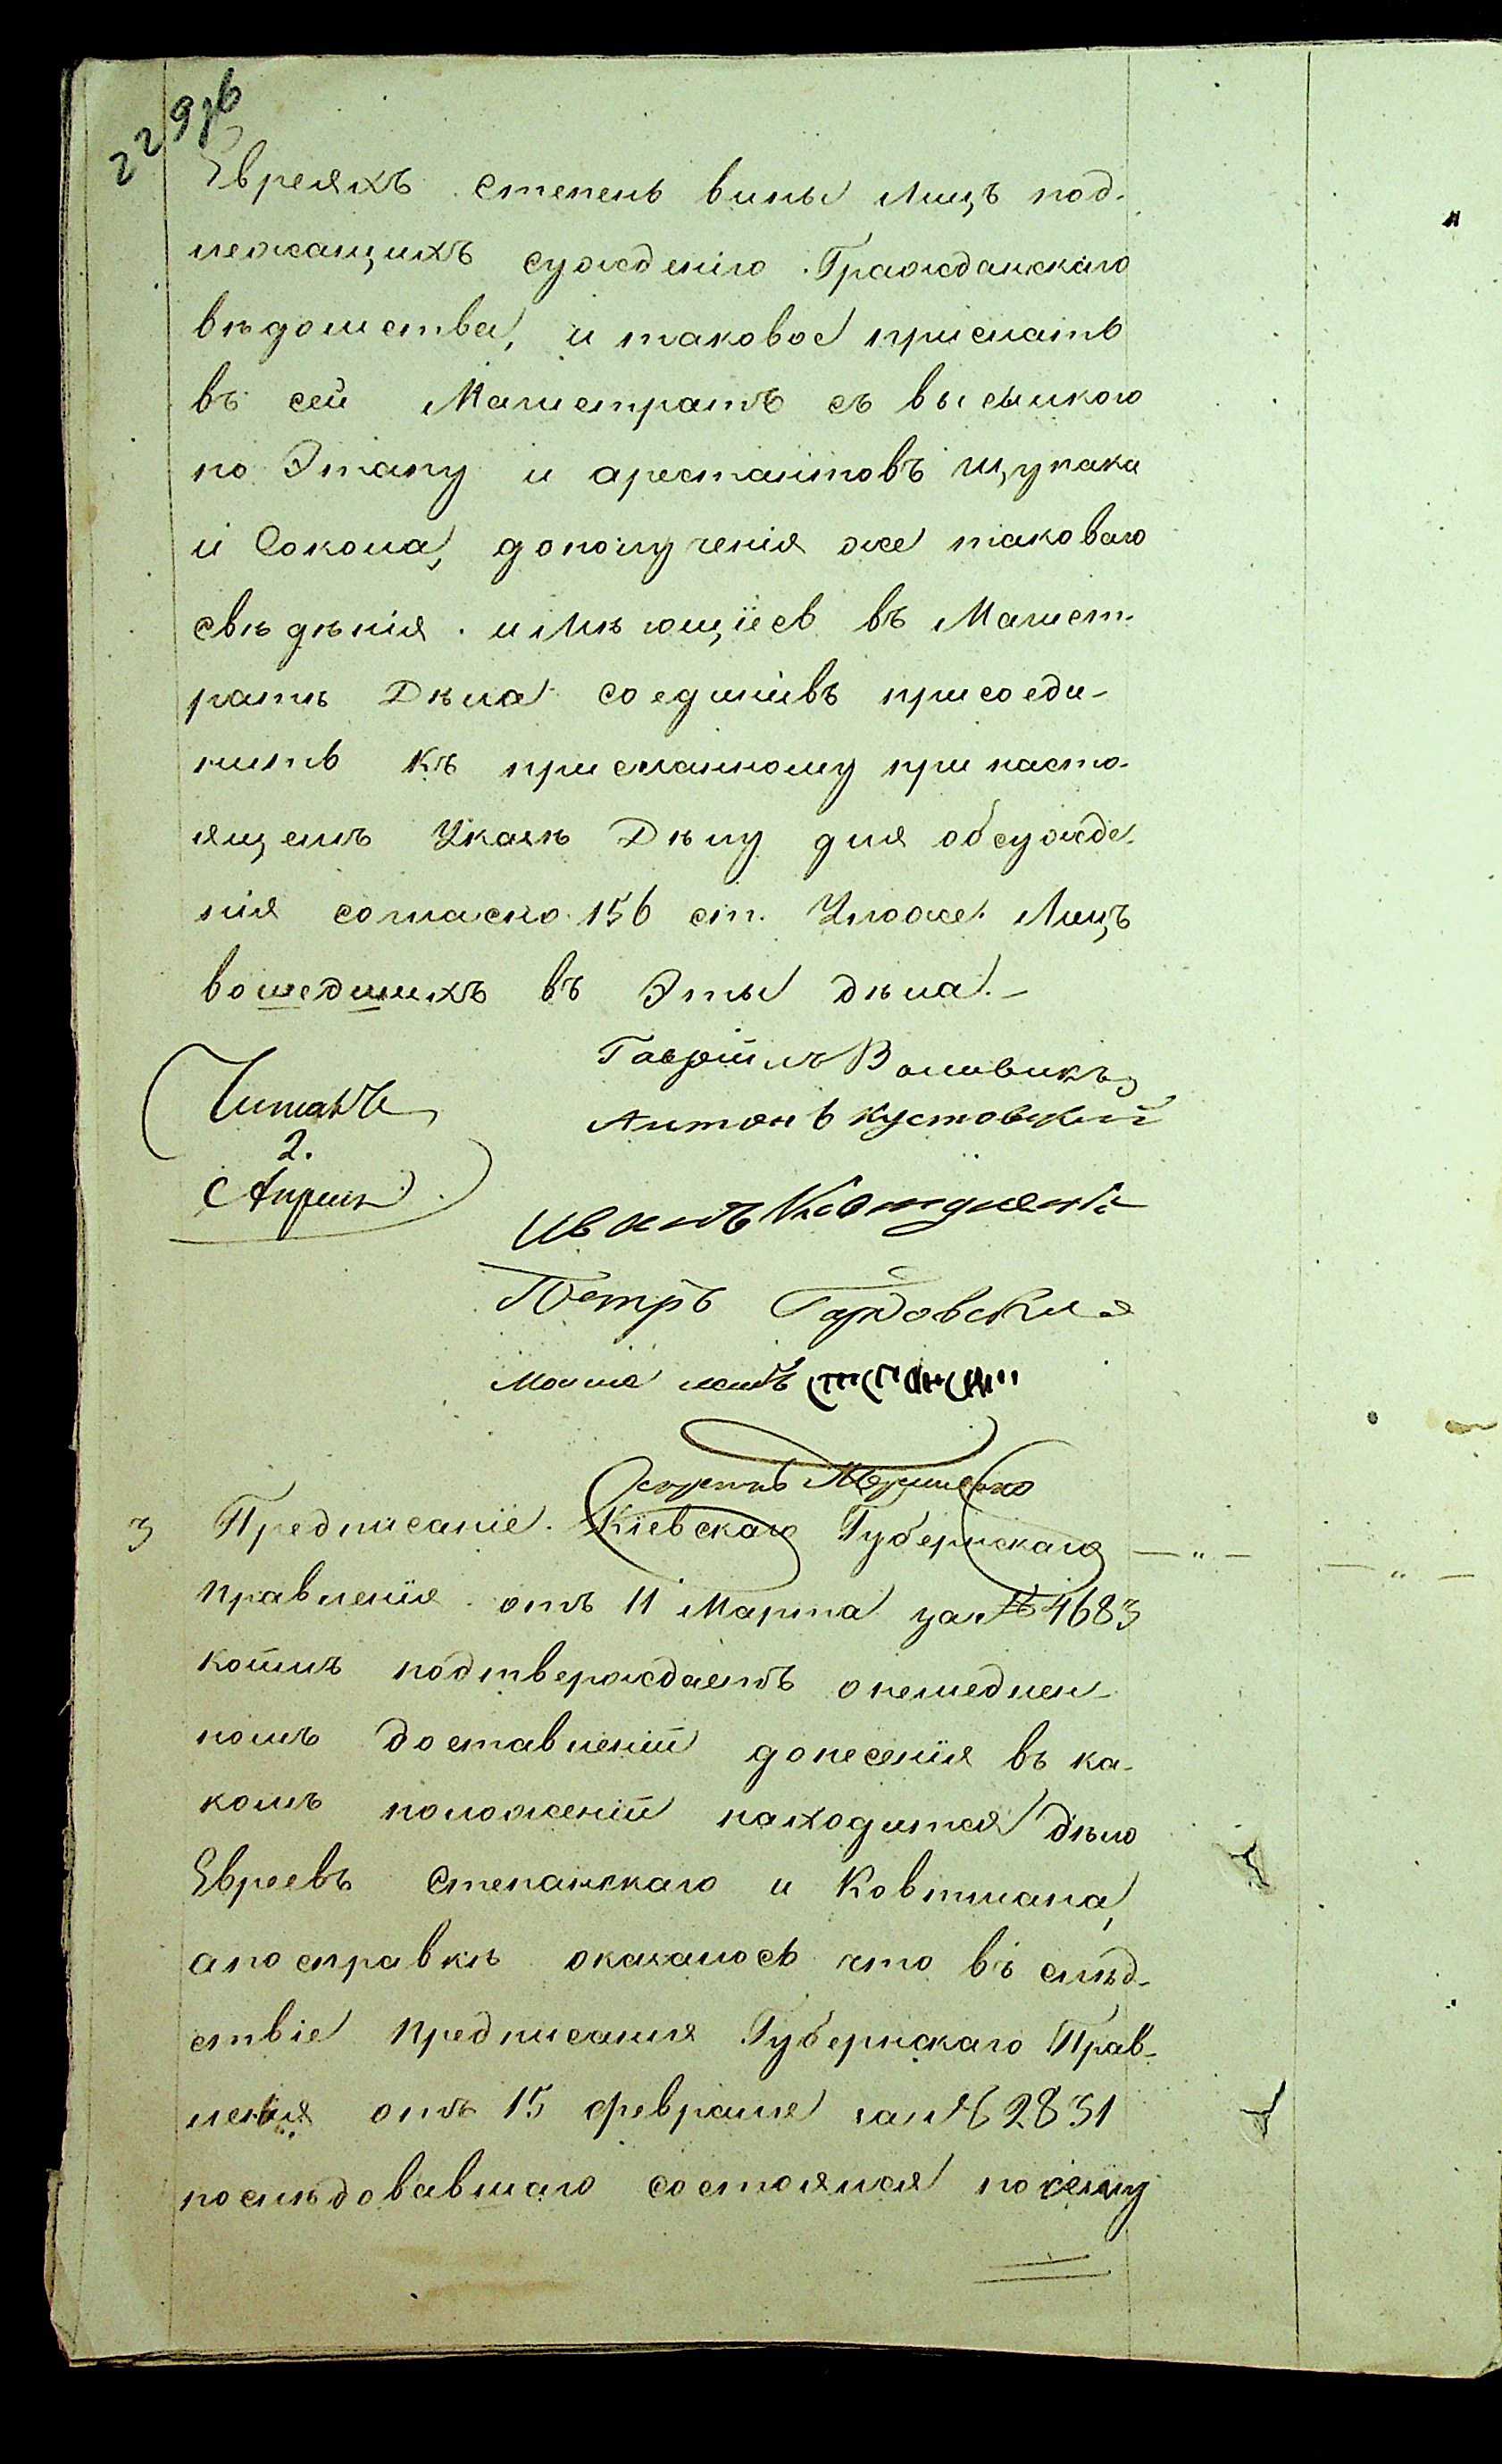 229об
Евреяхъ степень вины лицъ под-
лежащихъ сужденію Гражданскаго
вѣдомства, и таковое прислать
въ сей Магистратъ съ высылкою
по Этапу и арестантовъ Щупака
и Сокола, дополученія же таковаго
свѣдѣнія имѣющіесь въ Магист-
ратѣ Дѣла соединивъ присоеди-
нить къ присланному при насто-
ящемъ Указѣ Дѣлу для обсужде-
нія согласно 156 ст. Улож. Лицъ
вошедшихъ въ Эты дѣла.
Гавріилъ
Антонъ Кустовскій
Читалъ
2.
Апрѣля
Иванъ
Петръ
3 Предписаніе Кіевскаго Губернскаго
Правленія отъ 11 Марта за № 4683
коимъ подтверждаетъ онемедлен-
номъ доставленіи донесенія въ ка-
комъ положеніи находится дѣло
Евреевъ Степанскаго и Ковтмана,
апосправкѣ оказалось что въ слѣд-
ствіе Предписанія Губернскаго Прав-
ленія отъ 15 февраля за № 2831
послѣдовавшаго состоялся посему